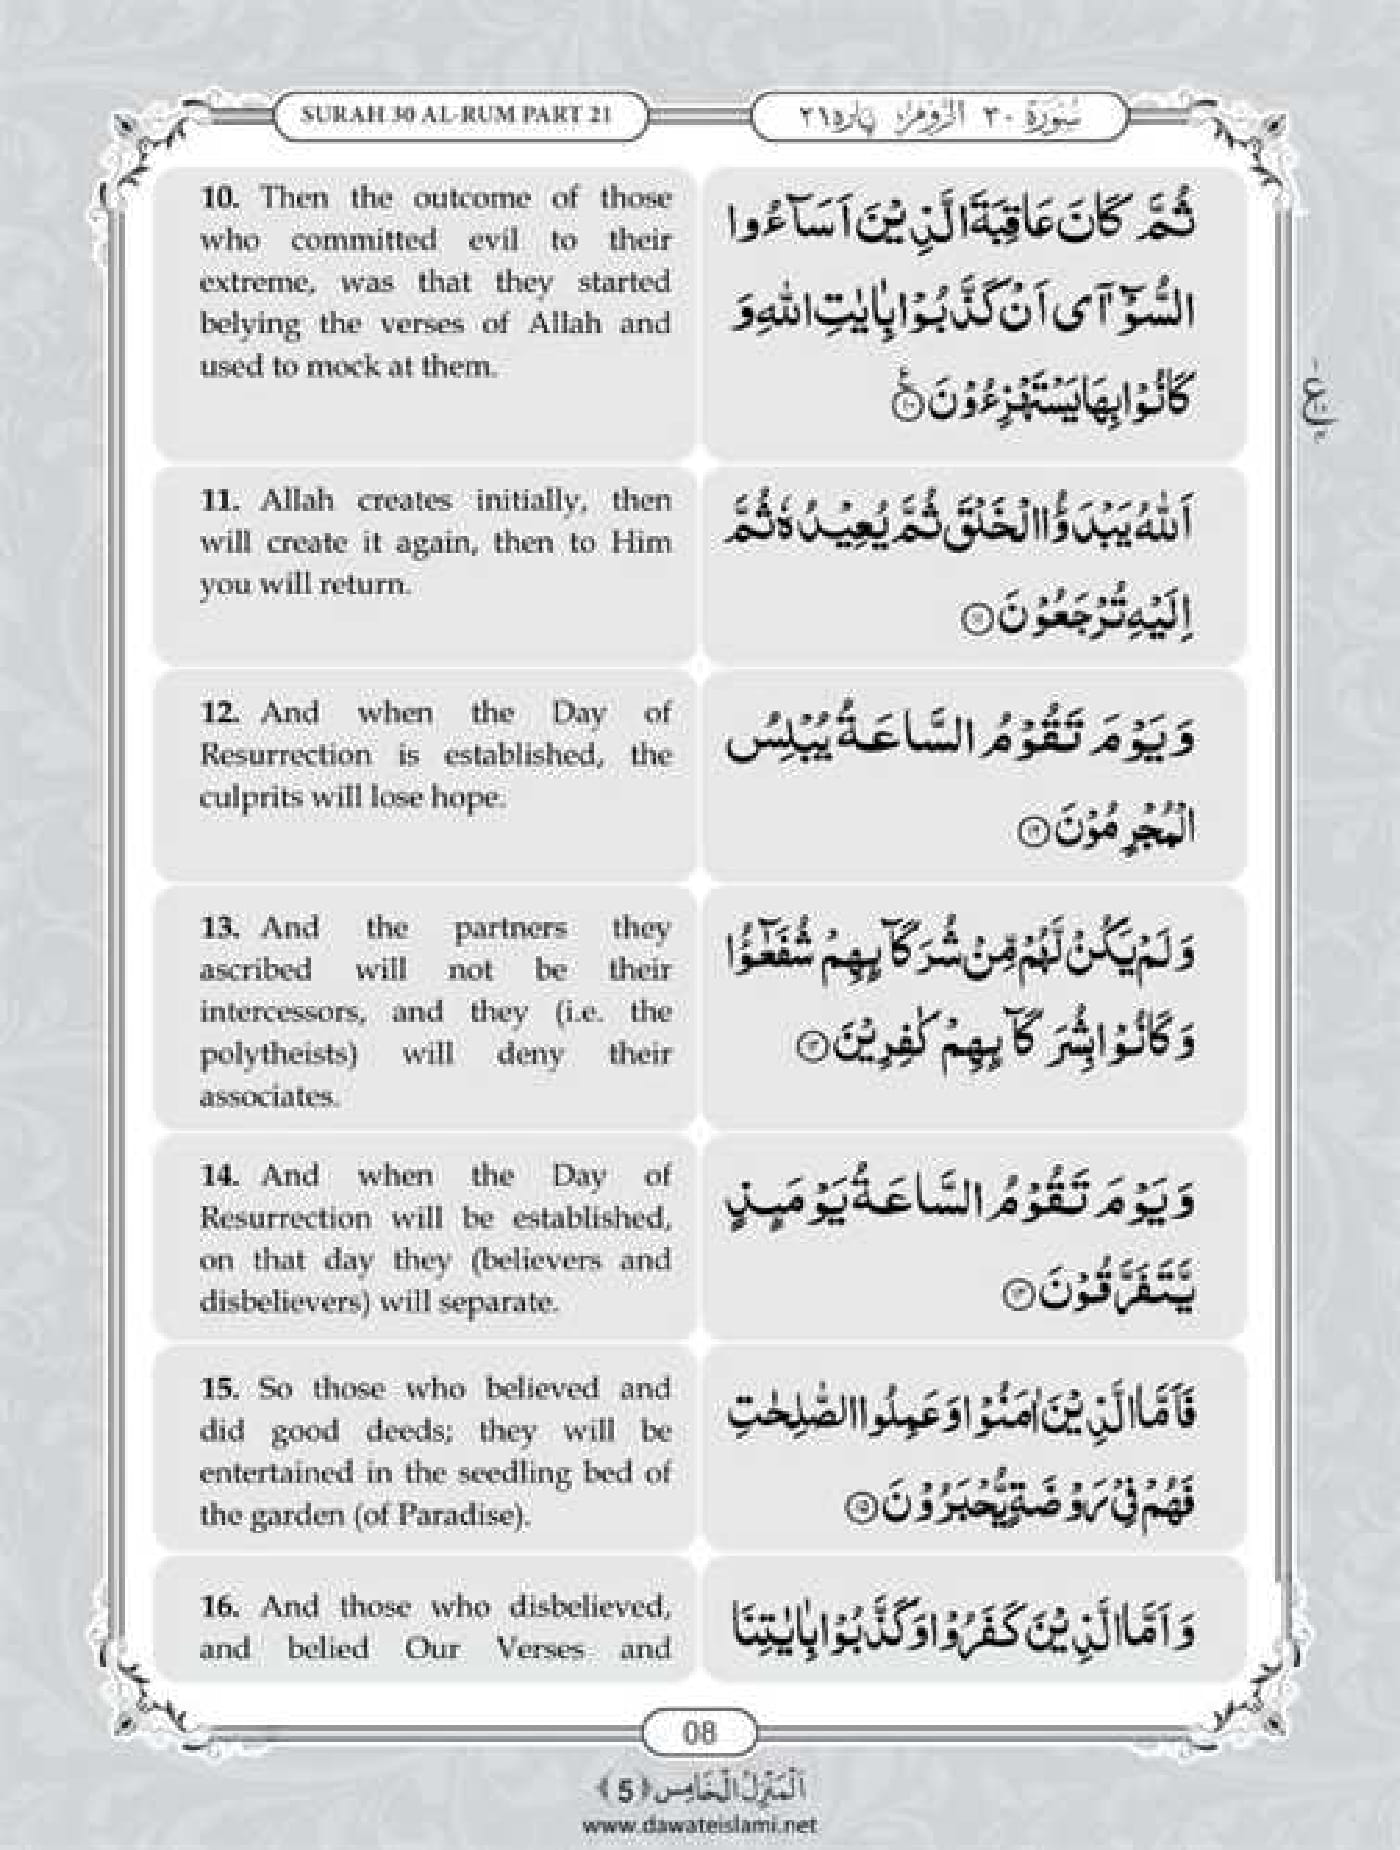 SURAH 30 AL-RUM PART 21
سُوْرَة ٣٠ اَلرُّوْمِ، پارہ ٢١
10. Then the outcome of those
who committed evil to their
extreme, was that they started
belying the verses of Allah and
used to mock at them.
ثُمَّ كَانَ عَاقِبَةَ الَّذِيْنَ اَسَآءُوا
السُّوْٓآٰى اَنْ كَذَّبُوْا بِاٰيٰتِ اللّٰهِ وَ
كَانُوْا بِهَا يَسْتَهْزِءُوْنَ ۧ۝۱۰
11. Allah creates initially, then
will create it again, then to Him
you will return.
اَللّٰهُ يَبْدَؤُا الْخَلْقَ ثُمَّ يُعِيْدُهٗ ثُمَّ
اِلَيْهِ تُرْجَعُوْنَ ۝۱۱
12. And when the Day of
Resurrection is established, the
culprits will lose hope.
وَ يَوْمَ تَقُوْمُ السَّاعَةُ يُبْلِسُ
الْمُجْرِمُوْنَ ۝۱۲
13. And the partners they
ascribed will not be their
intercessors, and they (i.e. the
polytheists) will deny their
associates.
وَ لَمْ يَكُنْ لَّهُمْ مِّنْ شُرَكَآىِٕهِمْ شُفَعٰٓؤُا
وَ كَانُوْا بِشُرَكَآىِٕهِمْ كٰفِرِيْنَ ۝۱۳
14. And when the Day of
Resurrection will be established,
on that day they (believers and
disbelievers) will separate.
وَ يَوْمَ تَقُوْمُ السَّاعَةُ يَوْمَىِٕذٍ
يَّتَفَرَّقُوْنَ ۝۱۴
15. So those who believed and
did good deeds; they will be
entertained in the seedling bed of
the garden (of Paradise).
فَاَمَّا الَّذِيْنَ اٰمَنُوْا وَ عَمِلُوا الصّٰلِحٰتِ
فَهُمْ فِيْ رَوْضَةٍ يُّحْبَرُوْنَ ۝۱۵
16. And those who disbelieved,
and belied Our Verses and
وَ اَمَّا الَّذِيْنَ كَفَرُوْا وَ كَذَّبُوْا بِاٰيٰتِنَا
08
اَلْمَنْزِلُ الْخَامِس ﴿5﴾
www.dawateislami.net